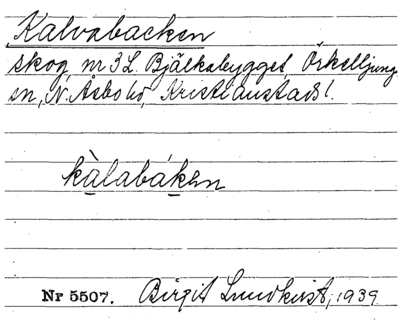 Kalvabacken
skog, nr 3 L. Bjälkabygget, Örkelljunga
sn, N. Åsbo hd, Kristianstads l.
kàlabáken
Nr 5507. Birgit Lundkvist, 1939